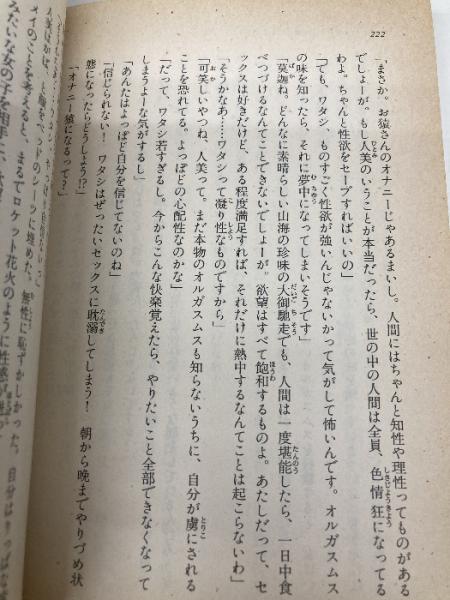 222
「まさか。お猿さんのオナニーじゃあるまいし。人間にはちゃんと知性や理性ってものがある
でしょーが。もし人美のいうことが本当だったら、世の中の人間は全員、色情狂になってる
わよ。ちゃんと性欲をセーブすればいいの」
「でも、ワタシ、ものすごく性欲が強いんじゃないかって気がして怖いんです。オルガスムス
の味を知ったら、それに夢中になってしまいそうです」
「莫迦ね。どんなに素晴らしい山海の珍味の大御馳走でも、人間は一度堪能したら、一日中食
べつづけるなんてことできないでしょーが。欲望はすべて飽和するものよ。あたしだって、セ
ックスは好きだけど、ある程度満足すれば、それだけに熱中するなんてことは起こらないわ」
「そうかなあ……ワタシって凝り性なものですから」
「可笑しいやつね、人美って。まだ本物のオルガスムスも知らないうちに、自分が虜にされる
ことを恐れてる。よっぽどの心配性なのかな」
「だって、ワタシ若すぎるし。今からこんな快楽覚えたら、やりたいこと全部できなくなって
しまうよーな気がするし」
「あんたはよっぽど自分を信じてないのね」
「信じられない！　ワタシはぜったいセックスに耽溺してしまう！　朝から晩までやりづめ状
態になったらどうしよう!?」
「オナニー猿になるって？」
に埋めた。無性に恥ずかしかった。
メイのことを考えると、まるでロケット花火のように性感が
みたいな女の子を相手に、